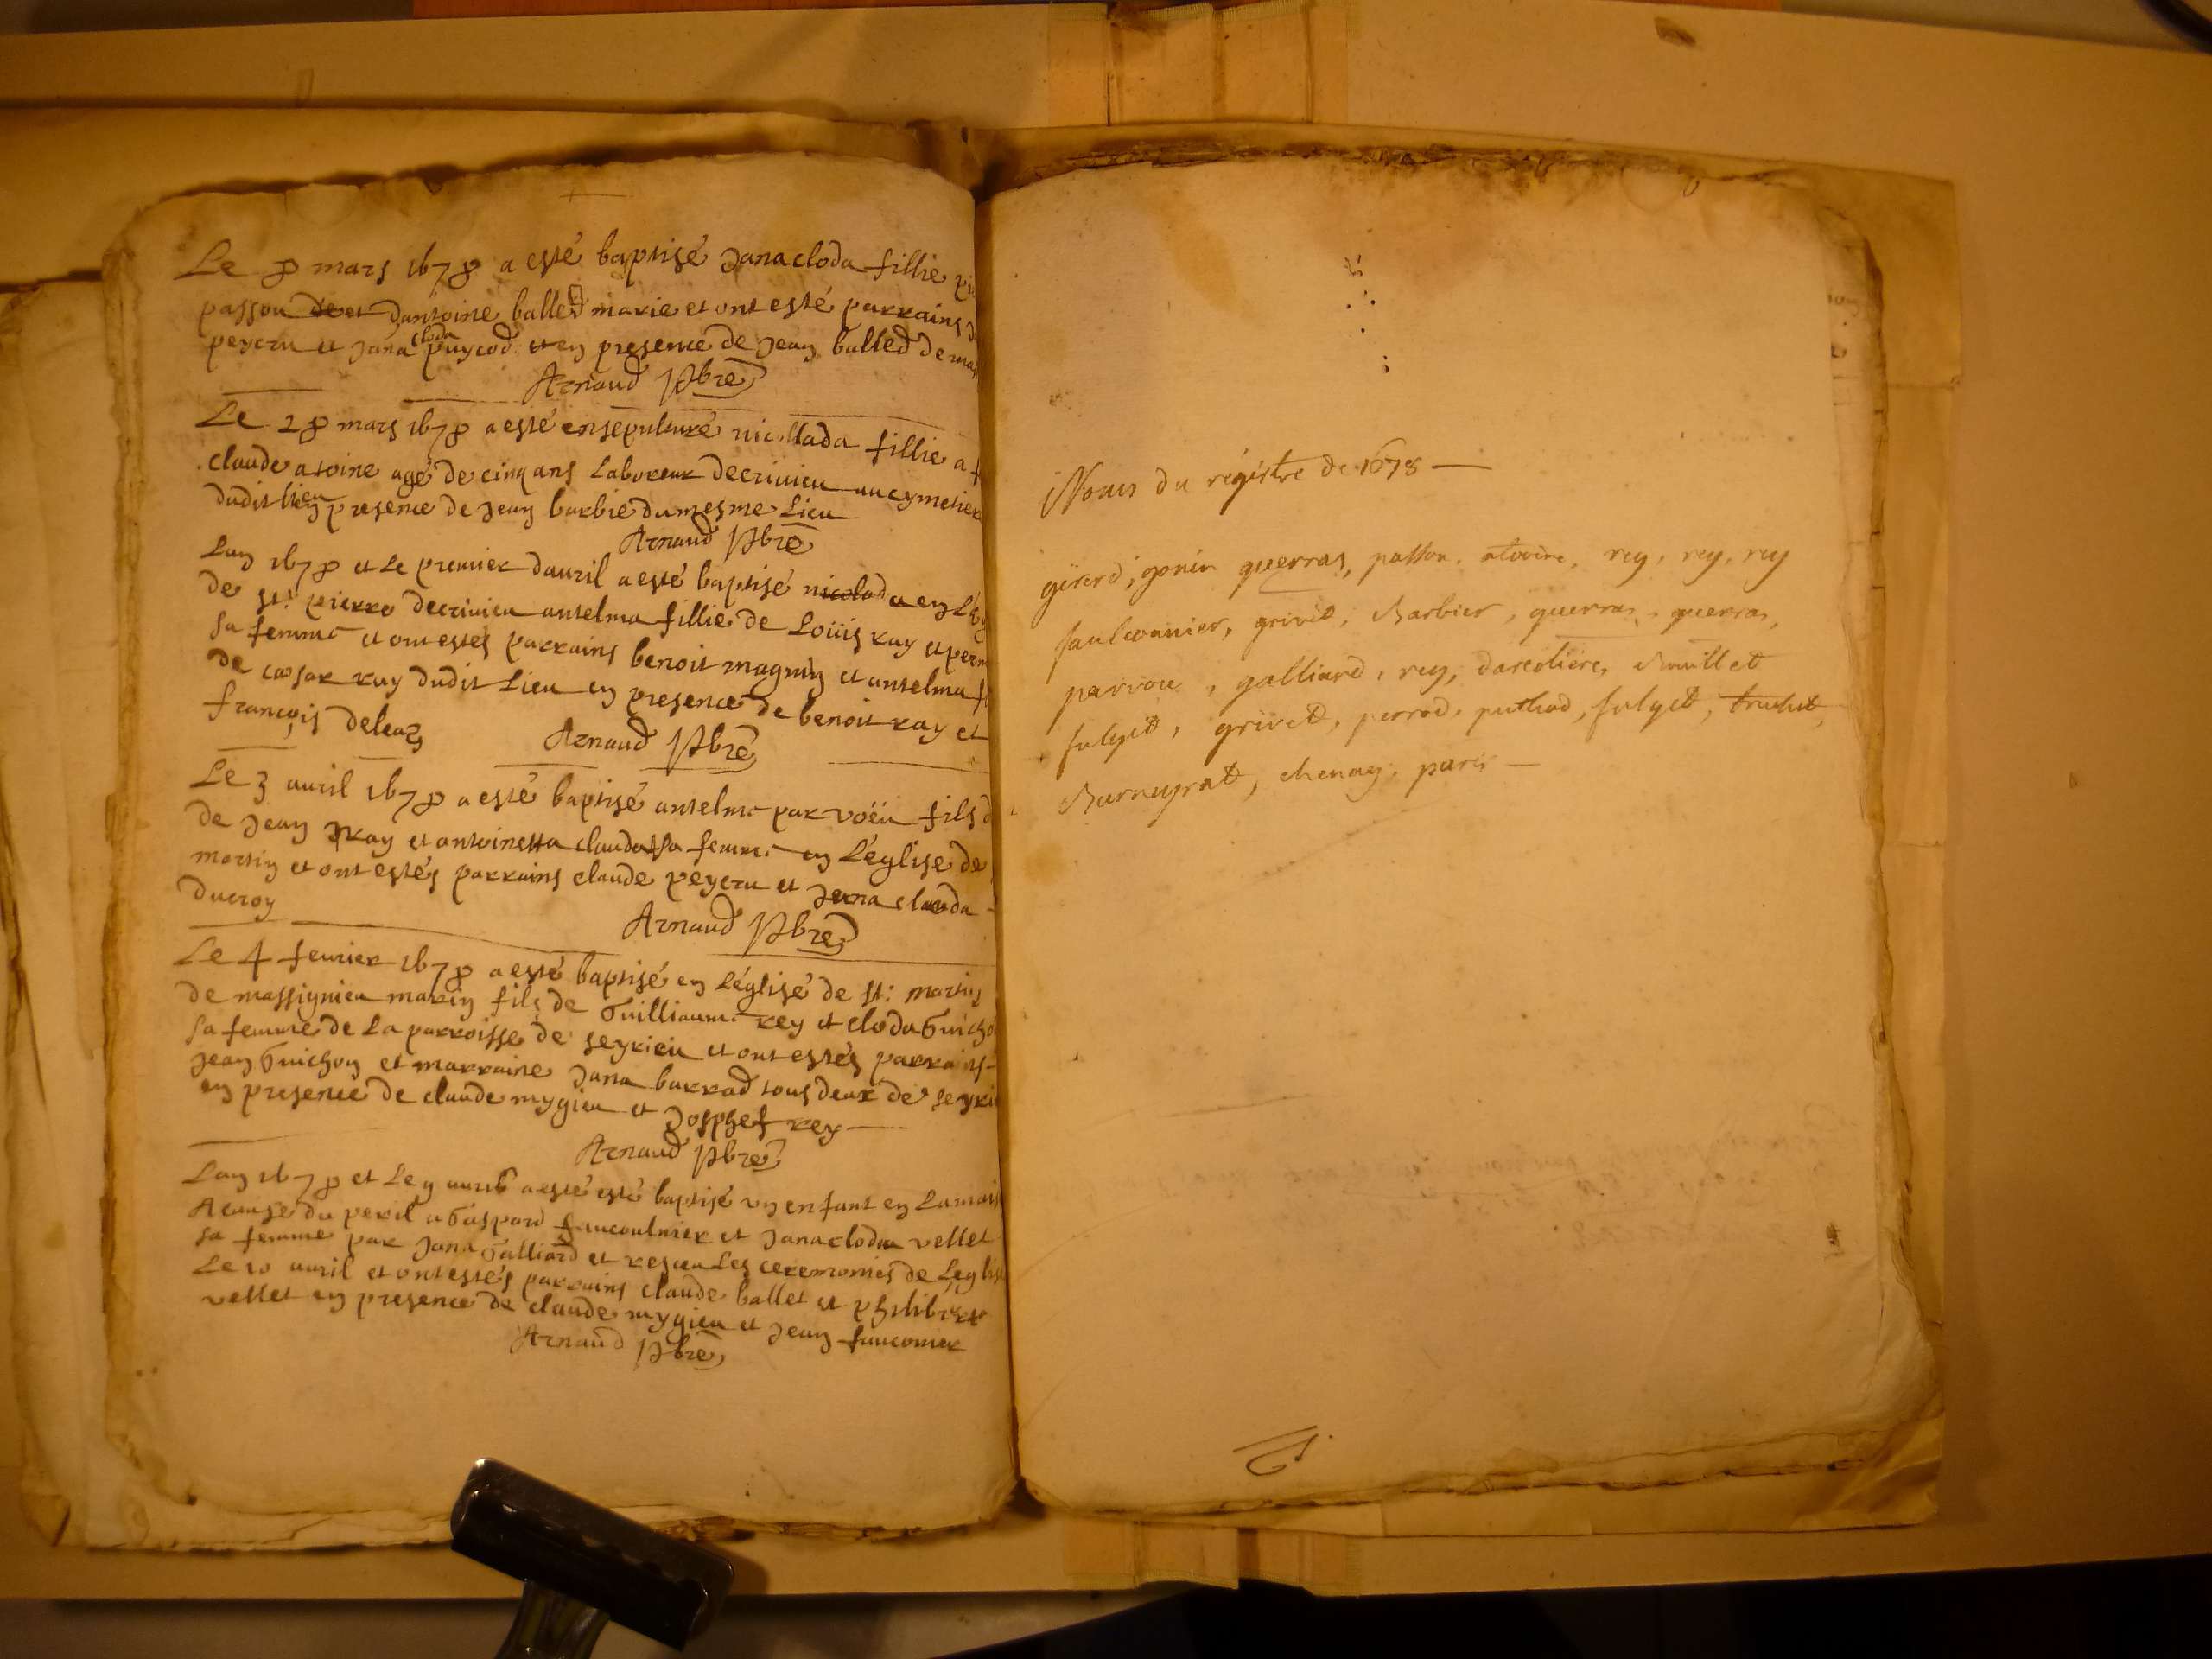 Le 8 mars 1678 a esté baptisé Janacloda fillie
passon de et dantoine balled marie et ont esté parrains
peycru et Jana cloda puycod et en presence de Jean balled de
Arnaud pbre
Le 28 mars 1678 a esté ensepulturé nicollada fillie a
claude atoine agé de cinq ans Laboreur decrivieu au cymetier
dudit lieu en presence de Jean barbié du mesme Lieu
Arnaud pbre
Lan 1678 et Le premier dauril a esté baptisé nicolada en
de st: pierre decrivieu antelma fillie de Loüis ray et
sa femme et ont estés parrains benoit magnin et antelma
de cæsar ray dudit Lieu en presence de benoit ray et
françois deleaz
Arnaud pbre
Le 3 auril 1678 a esté baptisé antelme par voëu fils
de Jean ray et antoinetta clauda sa femme en L'église de
martin et ont estés parrains claude peycru et Jana clauda
ducroy
Arnaud pbre
Le 4 feurier 1678 a esté baptisé en L'églisé de st: martin
de massignieu marin fils de Guilliaume rey et cloda
sa femme de La parroisse de seyrieu et ont estés parrains
Jean Guichon et marraine Jana barrad tous deux de
en presence de claude mygieu et Josphet rey
Arnaud pbre
Lan 1678 et Le 9 auril a esté esté baptisé un enfant en
A cause du peril a Gaspard faucoulnier et Janacloda vellet
sa femme par Jana Galliard et resceu Les ceremonies de
Le 10 auril et ont estés parrains claude ballet et philiberte
vellet en presence de claude mygieu et Jean fauconier
Arnaud pbre
Noms du régistre de 1678
girerd, gonin guerras, passon, atoine, rey, rey, rey
faulconnier, grivet, Barbier, guerras, guerras,
parrou, galliard, rey, darcolière,
fulgid, grivet, perrod, puthod, fulget, truchet,
Burneyrat, chenay, paris